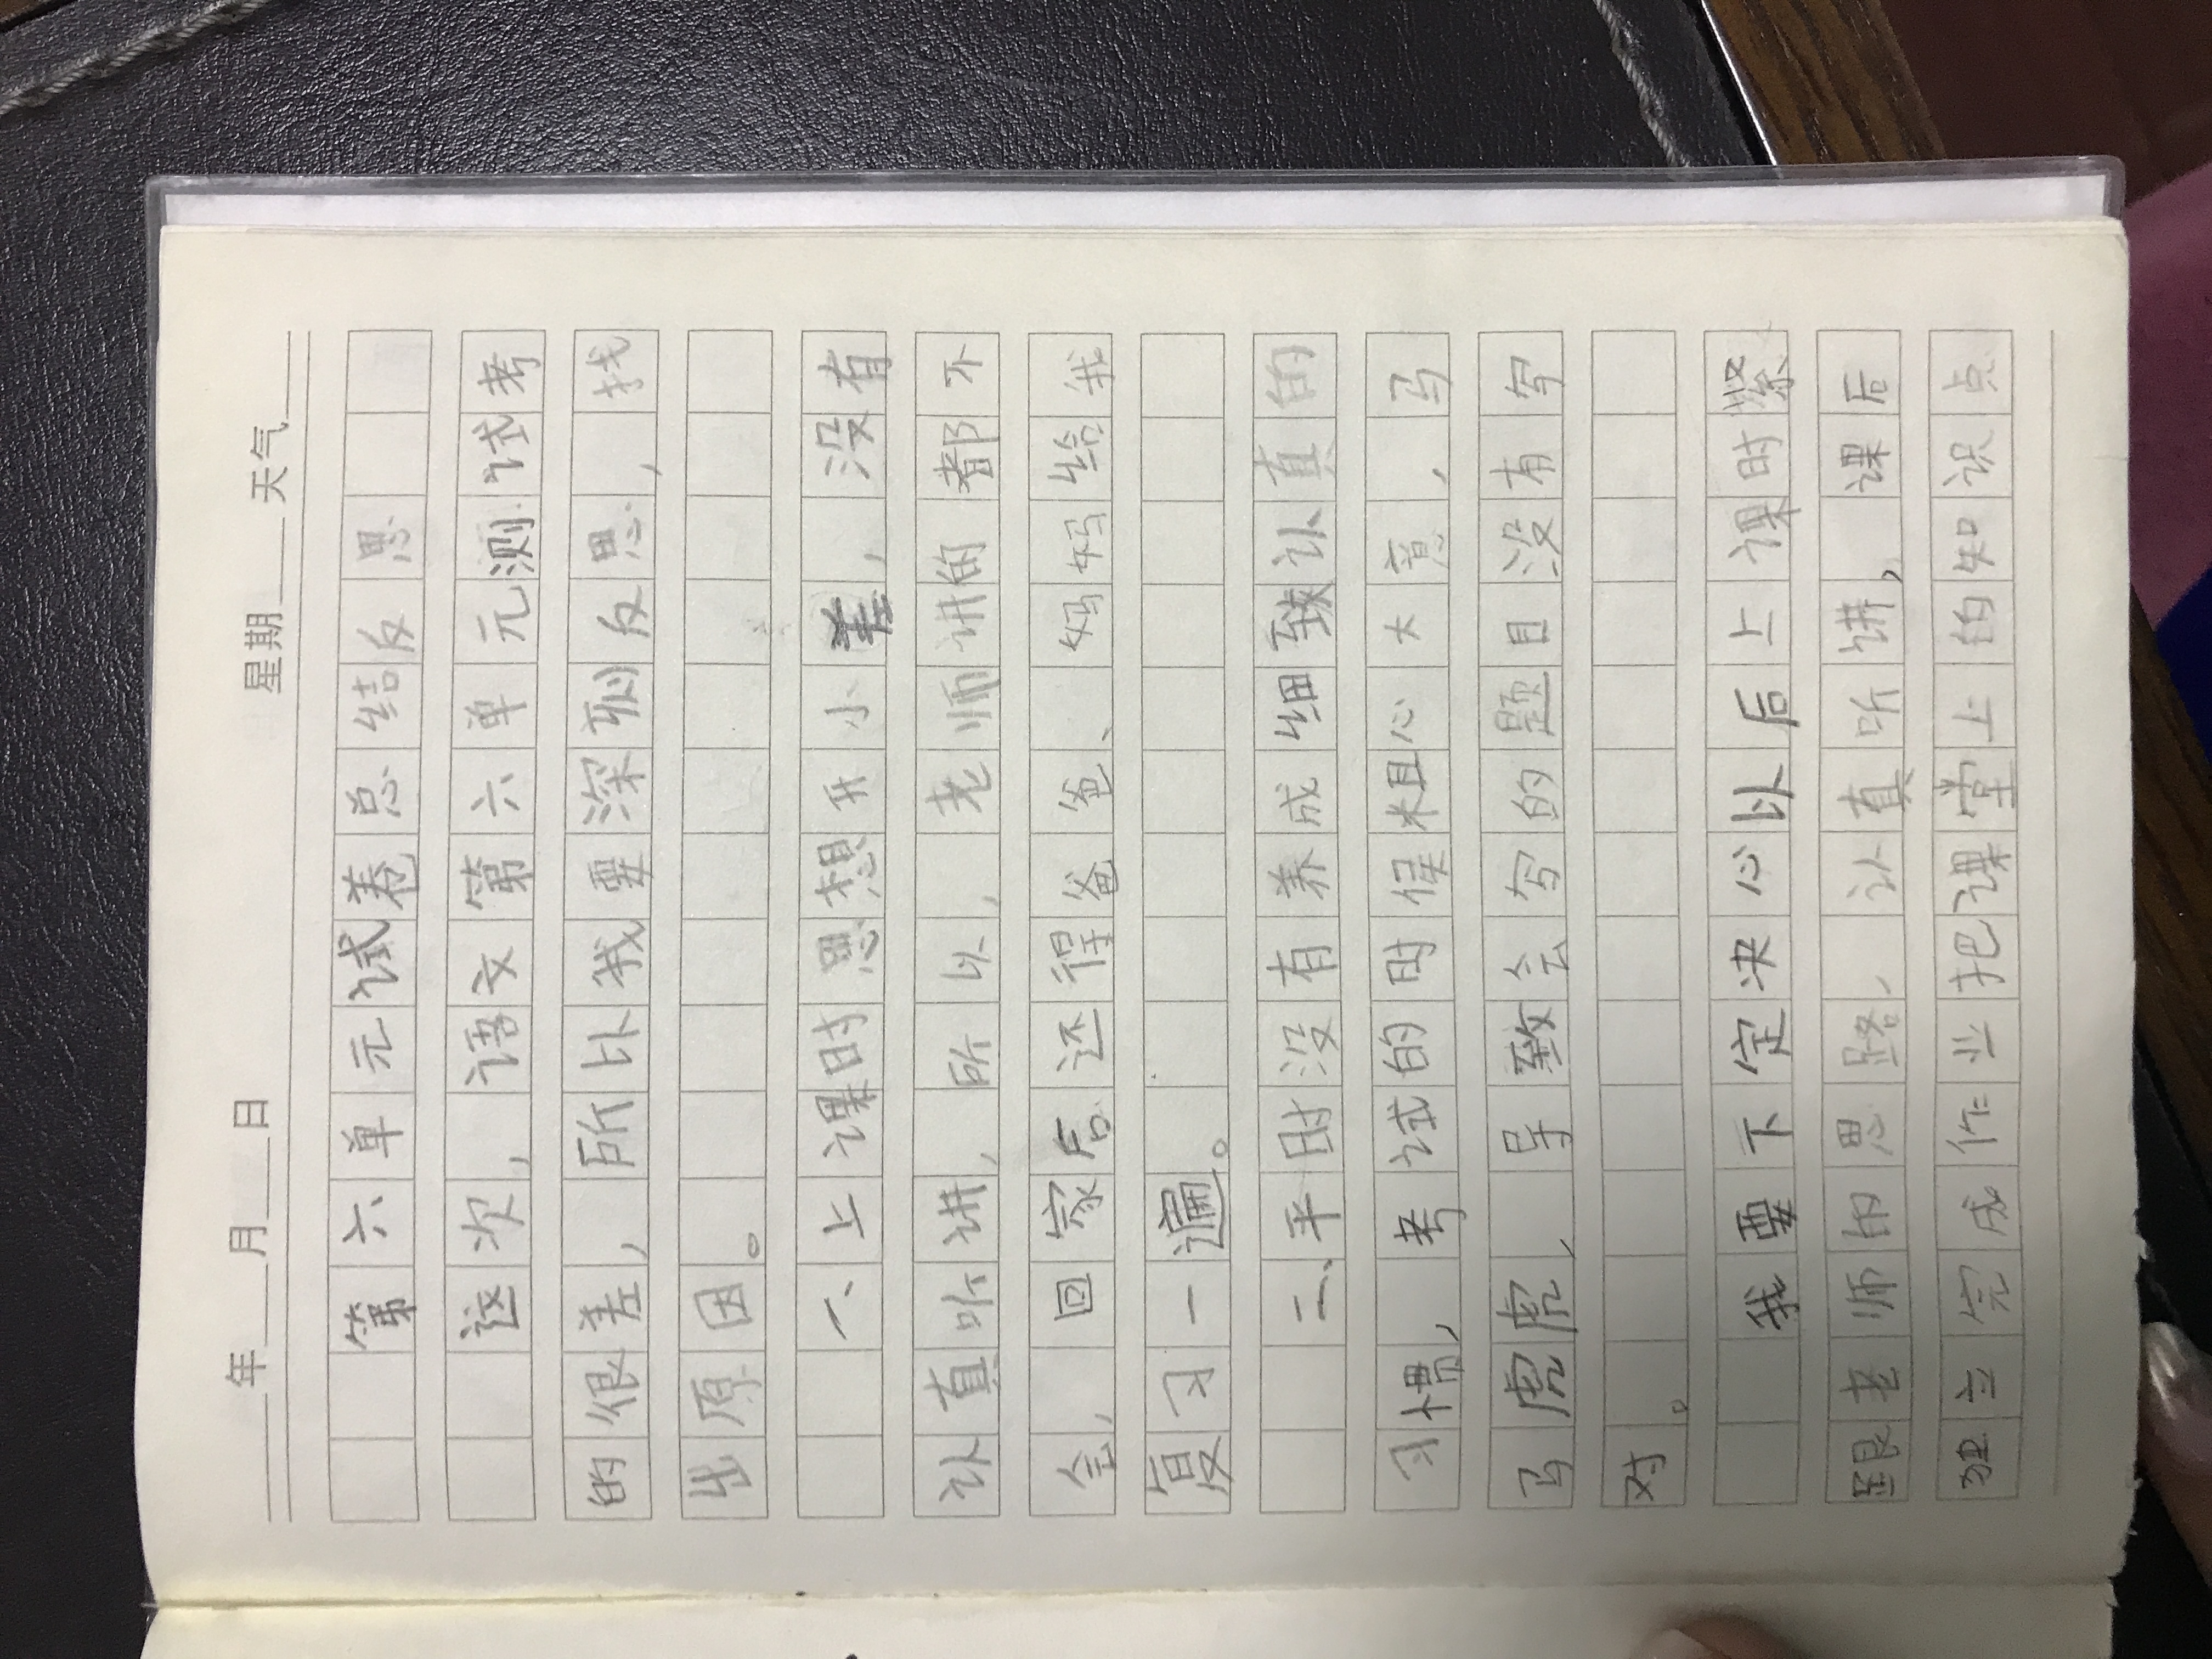 年 月 日 星期 天气
第六单元试卷总结反思
这次，语文第六单元测试考
的很差，所以我要深刻反思，找
出原因。
一、上课时思想开小差，没有
认真听讲，所以，老师讲的都不
会，回家后还得爸爸、妈妈给我
复习一遍。
二、平时没有养成细致认真的
习惯，考试的时候粗心大意，马
马虎虎，导致会写的题目没有写
对。
我要下定决心以后上课时紧
跟老师的思路，认真听讲，课后
独立完成作业把课堂上的知识点